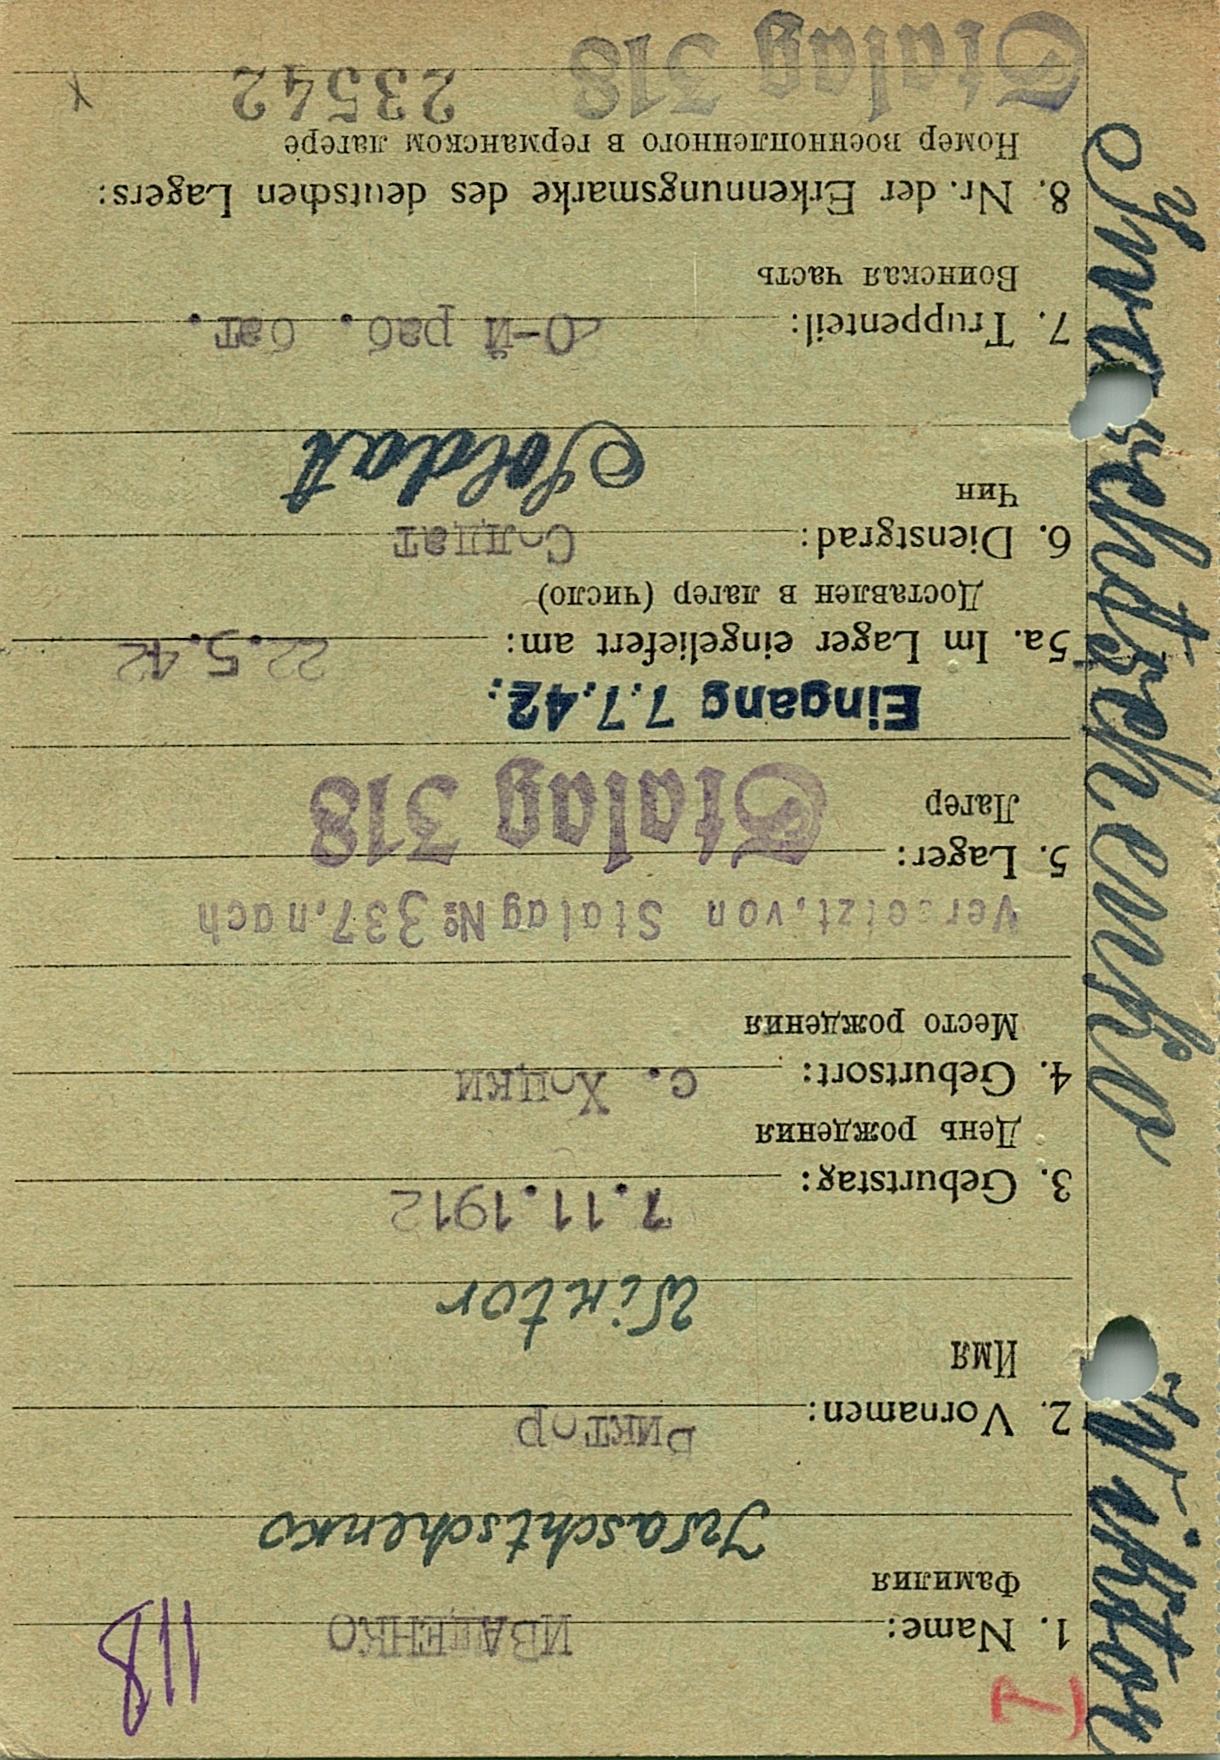 I
118
1. Name: ИВАЩЕНКО
Фамилия
Iwaschtschenko
2. Vornamen: Виктор
Имя
Wiktor
3. Geburtstag: 7.11.1912
День рождения
4. Geburtsort: с. Хоцки
Место рождения
Versetzt. von Stalag № 337. nach
5. Lager: Stalag 318
Лагер
Eingang 7.7.42.
5a. Im Lager eingeliefert am: 22.5.42
Доставлен в лагер (число)
6. Dienstgrad: Солдат
Чин
Soldat
7. Truppenteil: 0-й раб. бат.
Воинская часть
8. Nr. der Erkennungsmarke des deutschen Lagers:
Номер военнопленного в германском лагере
Stalag 318 23542
x
Iwaschtschenko Wiktor